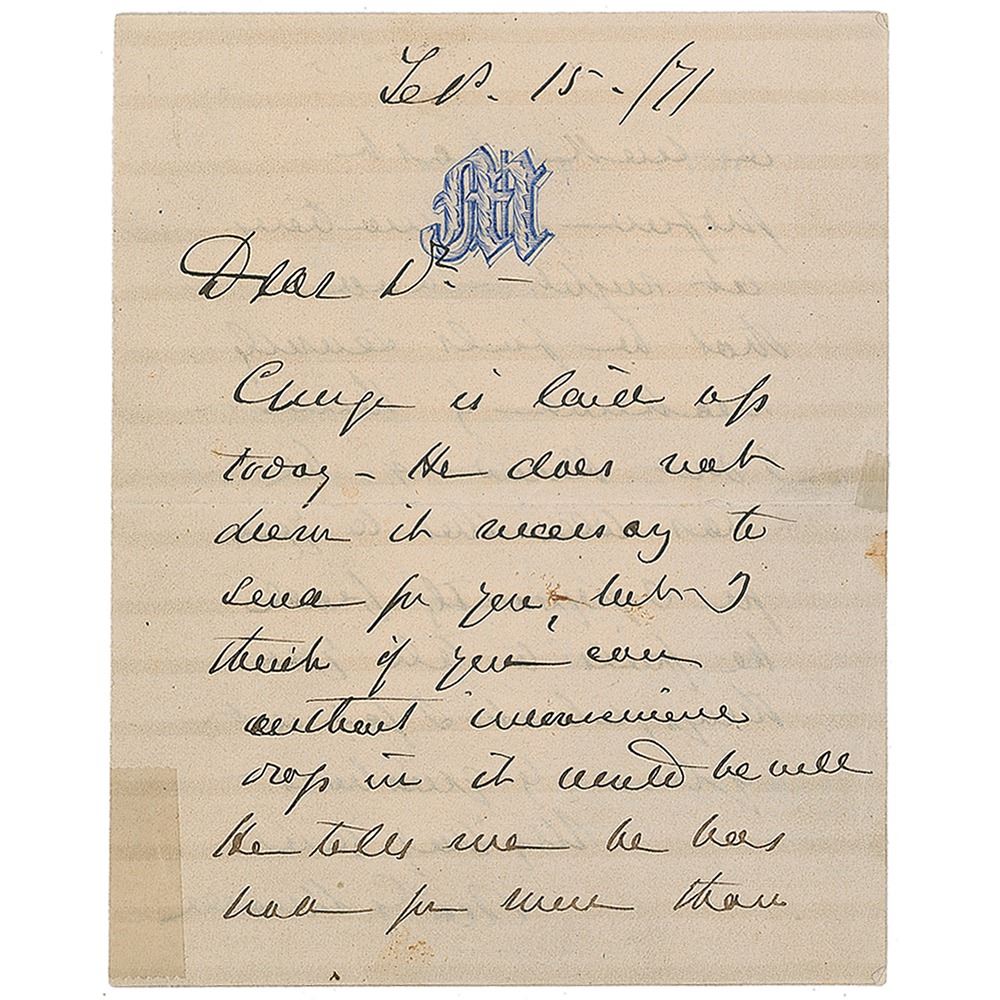 Sep. 15 - /71
M
Dear Dr —
George is laid up
today - He does not
deem it necessary to
send for you, but I
think if you can
without inconvenience
drop in it would be well
He tells me he has
had for more than